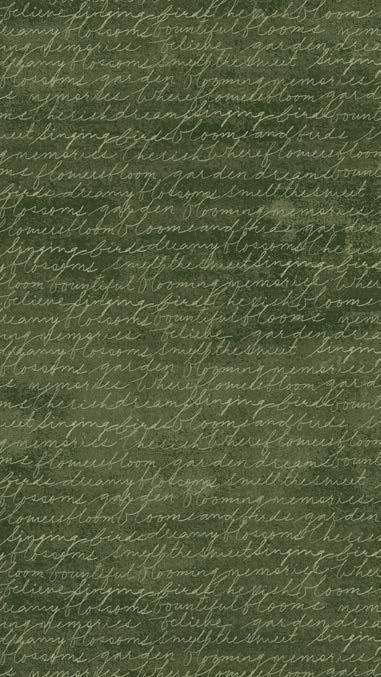 believe singing birds cherish bloom
dreamy blossoms bountiful blooms mem
ing memories believe garden dre
dreamy blossoms smell the sweet singin
blossoms garden blooming memories
memories where flowers bloom gard
cherish dreams singing birds bount
sweet singing birds blooms and birds
memories cherish where flowers bloo
flowers bloom garden dreams bount
birds dreamy blossoms smell the sweet
blossoms garden blooming memories
flowers bloom blooms and birds gard
singing birds dreamy blossoms cheris
blossoms smell the sweet singing bird
bloom bountiful blooming memories where
believe singing birds cherish bloom
dreamy blossoms bountiful blooms mem
ing memories believe garden dre
dreamy blossoms smell the sweet singin
blossoms garden blooming memories
memories where flowers bloom gard
cherish dreams singing birds bount
sweet singing birds blooms and birds
memories cherish where flowers bloo
flowers bloom garden dreams bount
birds dreamy blossoms smell the sweet
blossoms garden blooming memories
flowers bloom blooms and birds gard
singing birds dreamy blossoms cheris
blossoms smell the sweet singing bird
bloom bountiful blooming memories where
believe singing birds cherish bloom
dreamy blossoms bountiful blooms mem
ing memories believe garden dre
dreamy blossoms smell the sweet singin
blossoms garden blooming memories
memories where flowers bloom gard